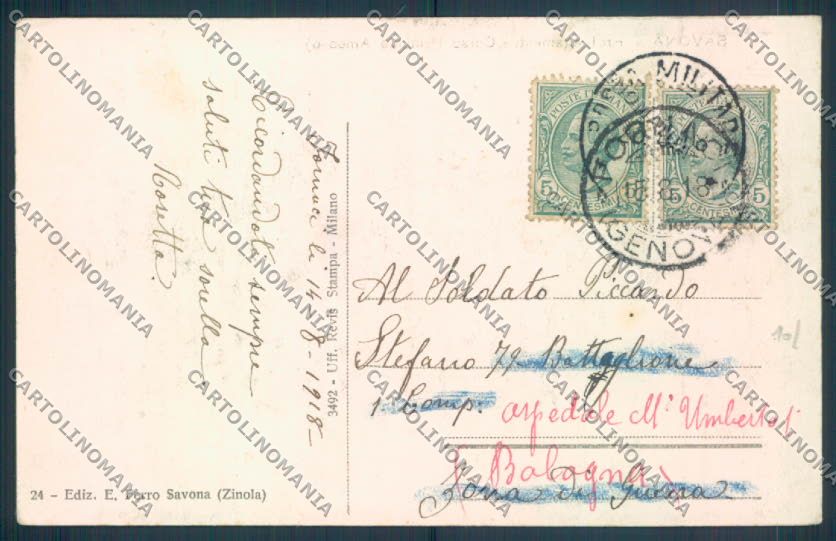 Fornaci li 14-8-1918-
Ricordandoti sempre
saluti tua sorella
Rosetta.
24 - Ediz. E. Ferro Savona (Zinola)
3492 - Uff. Revis. Stampa - Milano
POSTE ITALIANE
5 CENTESIMI 5
CENTESIMI 5
MILITARE
(GENOVA)
Al Soldato Piccardo
Stefano 79 Battaglione
1 Comp.
ospedale M. Umberto I
(Bologna)
Zona di Guerra
10/
CARTOLINOMANIA